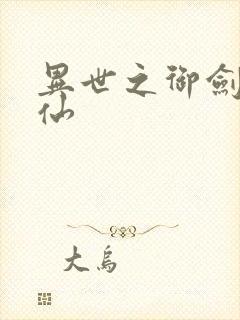 異世之御劍
仙
大烏